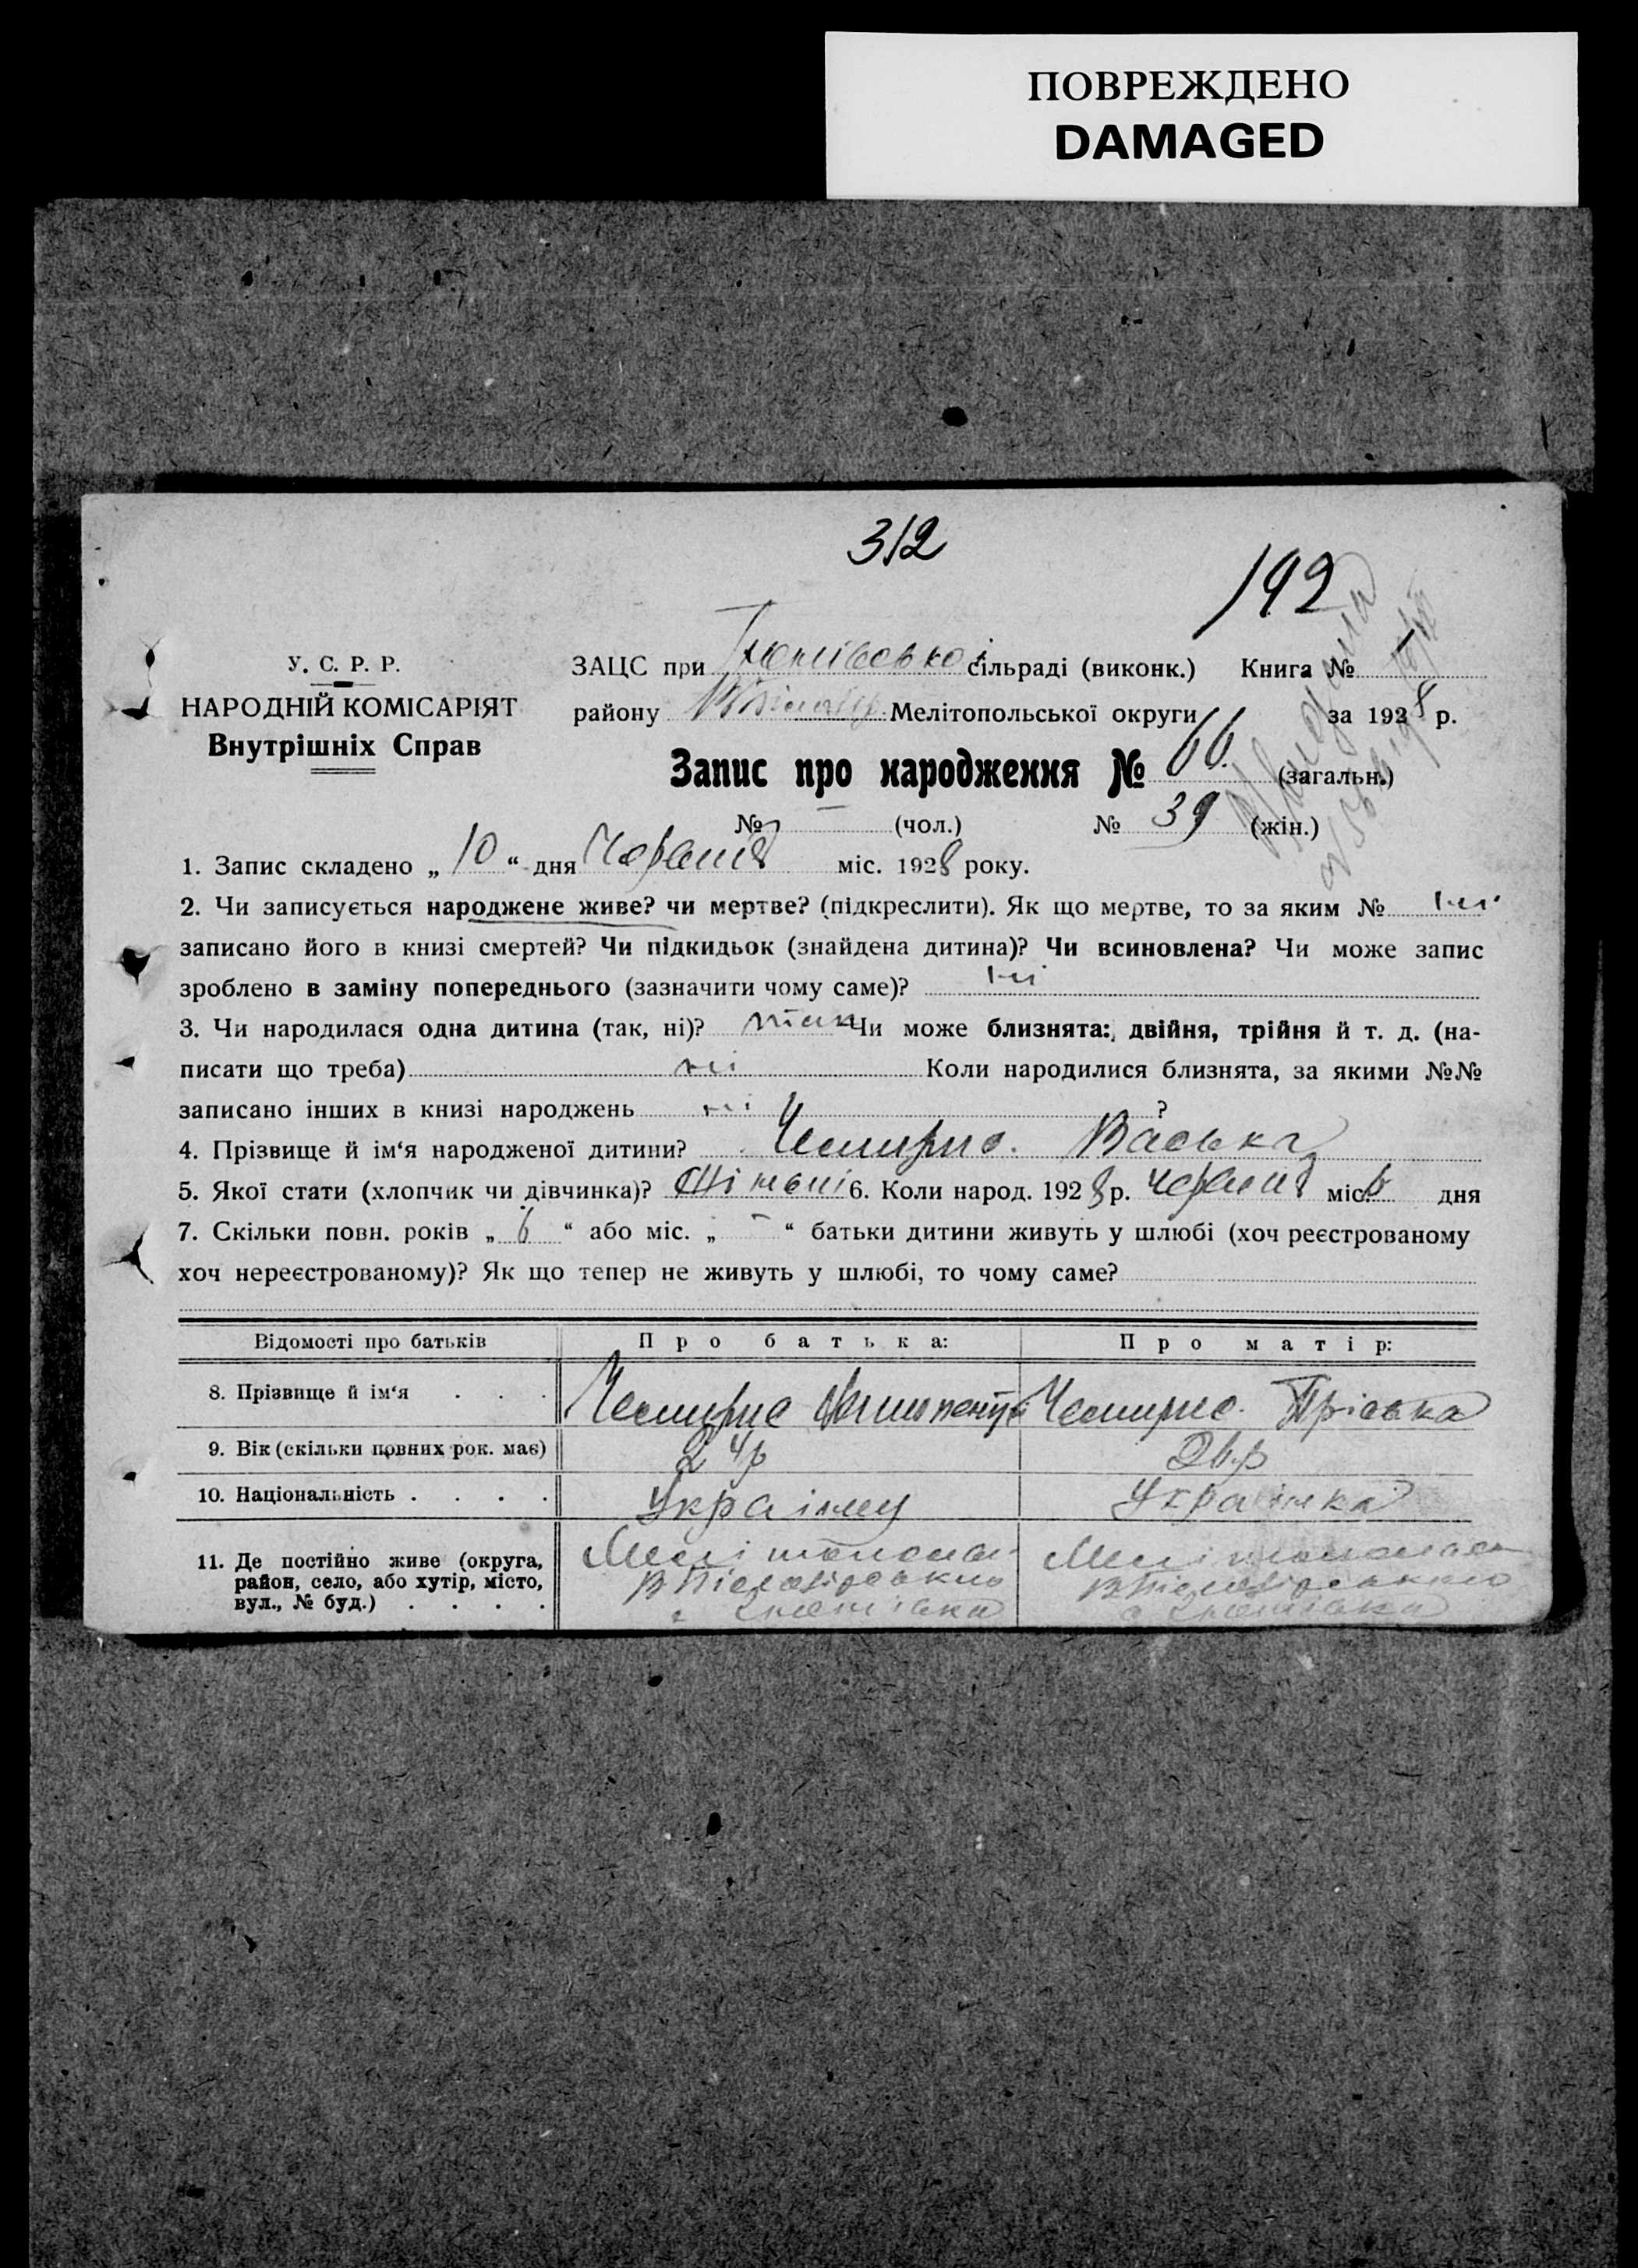 ПОВРЕЖДЕНО
DAMAGED
312
192
У. С. Р. Р.
НАРОДНІЙ КОМІСАРІЯТ
Внутрішніх Справ
ЗАЦС при сільраді (виконк.) Книга №
району Мелітопольської округи за 1928 р.
Запис про народження № 66. (загальн.)
№ — (чол.) № 39 (жін.)
1. Запис складено „ 10 “ дня Червня міс. 1928 року.
2. Чи записується народжене живе? чи мертве? (підкреслити). Як що мертве, то за яким № ні
записано його в книзі смертей? Чи підкидьок (знайдена дитина)? Чи всиновлена? Чи може запис
зроблено в заміну попереднього (зазначити чому саме)? ні
3. Чи народилася одна дитина (так, ні)? так Чи може близнята: двійня, трійня й т. д. (на-
писати що треба) ні Коли народилися близнята, за якими №№
записано інших в книзі народжень ні ?
4. Прізвище й ім‘я народженої дитини? Васька
5. Якої стати (хлопчик чи дівчинка)? 6. Коли народ. 1928 р. Червня міс. 6 дня
7. Скільки повн. років „ 6 “ або міс. „ — “ батьки дитини живуть у шлюбі (хоч реєстрованому
хоч нереєстрованому)? Як що тепер не живуть у шлюбі, то чому саме?
Відомості про батьків Про батька: Про матір:
8. Прізвище й ім‘я . . . Пріська
9. Вік (скільки повних рок. має) 24р 26.р
10. Національність . . . . Українец Українка
11. Де постійно живе (округа,
район, село, або хутір, місто,
вул., № буд.) . . . .